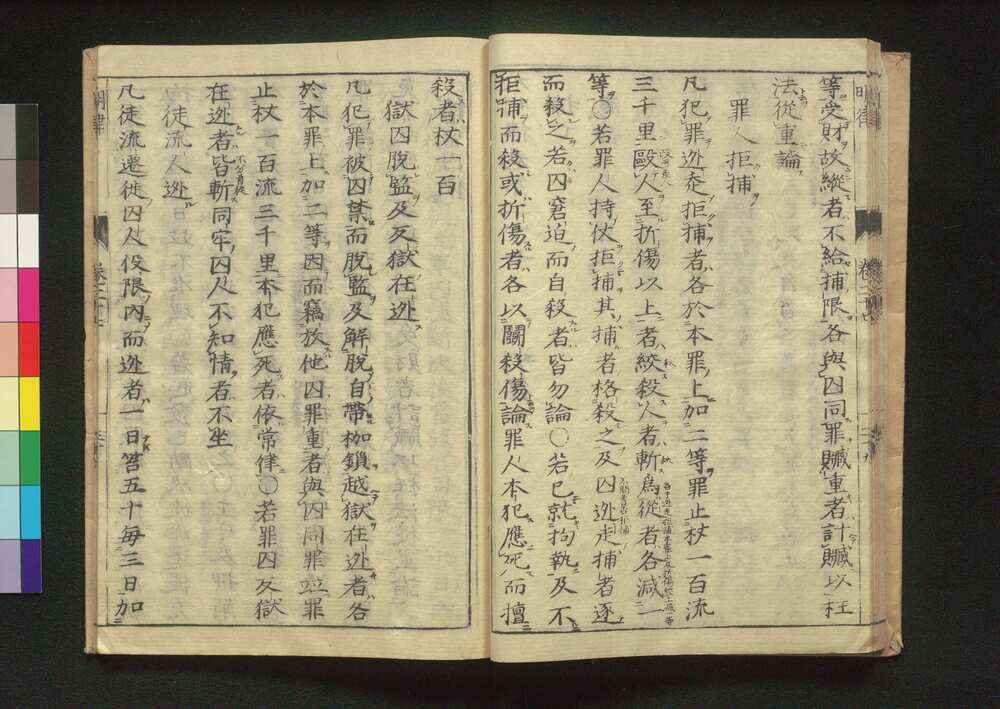 等受財故縱者不給捕限各與囚同罪贓重者計贓以枉
法從重論
罪人拒捕
凡犯罪迯走拒捕者各於本罪上加二等罪止杖一百流
三千里毆人至折傷以上者絞殺人者斬爲從者各減一
等○若罪人持仗拒捕其捕者格殺之及囚迯走捕者逐
而殺之若囚窘迫而自殺者皆勿論○若已就拘執及不
拒捕而殺或折傷者各以鬪殺傷論罪人本犯應死而擅
殺者杖一百
獄囚脫監及反獄在迯
凡犯罪被囚禁而脫監及解脫自帶枷鎖越獄在迯者各
於本罪上加二等因而竊放他囚罪重者與囚同罪並罪
止杖一百流三千里本犯應死者依常律○若罪囚反獄
在迯者皆斬同牢囚人不知情者不坐
徒流人迯
凡徒流遷徙囚人伇限內而迯者一日笞五十每三日加
明律